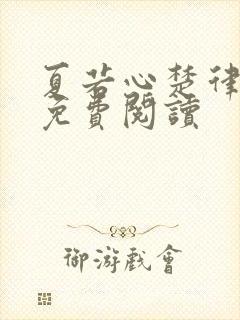 夏若心楚律
免費閱讀
御游戲會